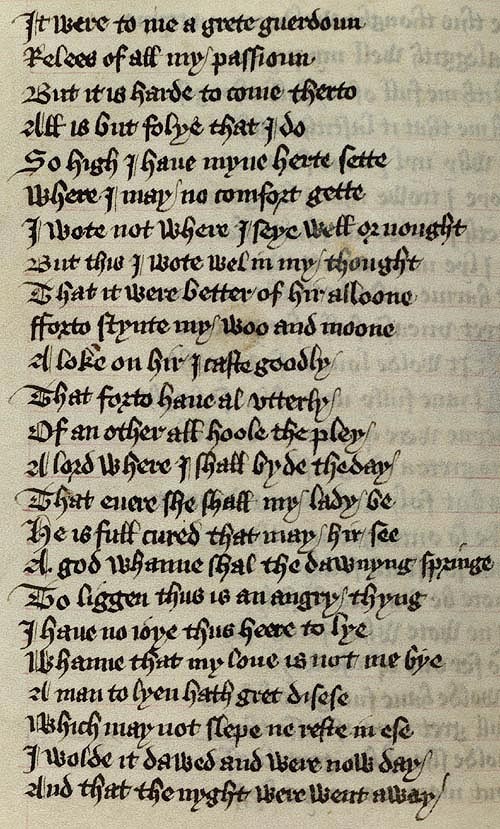 It were to me a grete guerdoun
Relees of all my passioun
But it is harde to come therto
All is but folye that I do
So high I haue myne herte sette
Where I may no comfort gette
I wote not where I seye well or nought
But this I wote wel in my thought
That it were better of hir alloone
fforto stynte my woo and moone
A loke on hir I caste goodly
That forto haue al vtterly
Of an other all hoole the pley
A lord where I shall byde the day
That euere she shall my lady be
He is full cured that may hir see
A god whanne shal the dawnyng springe
To liggen thus is an angry thyng
I haue no ioye thus heere to lye
Whanne that my loue is not me bye
A man to lyen hath gret disese
Which may not slepe ne reste in ese
I wolde it dawed and were now day
And that the nyght were went away